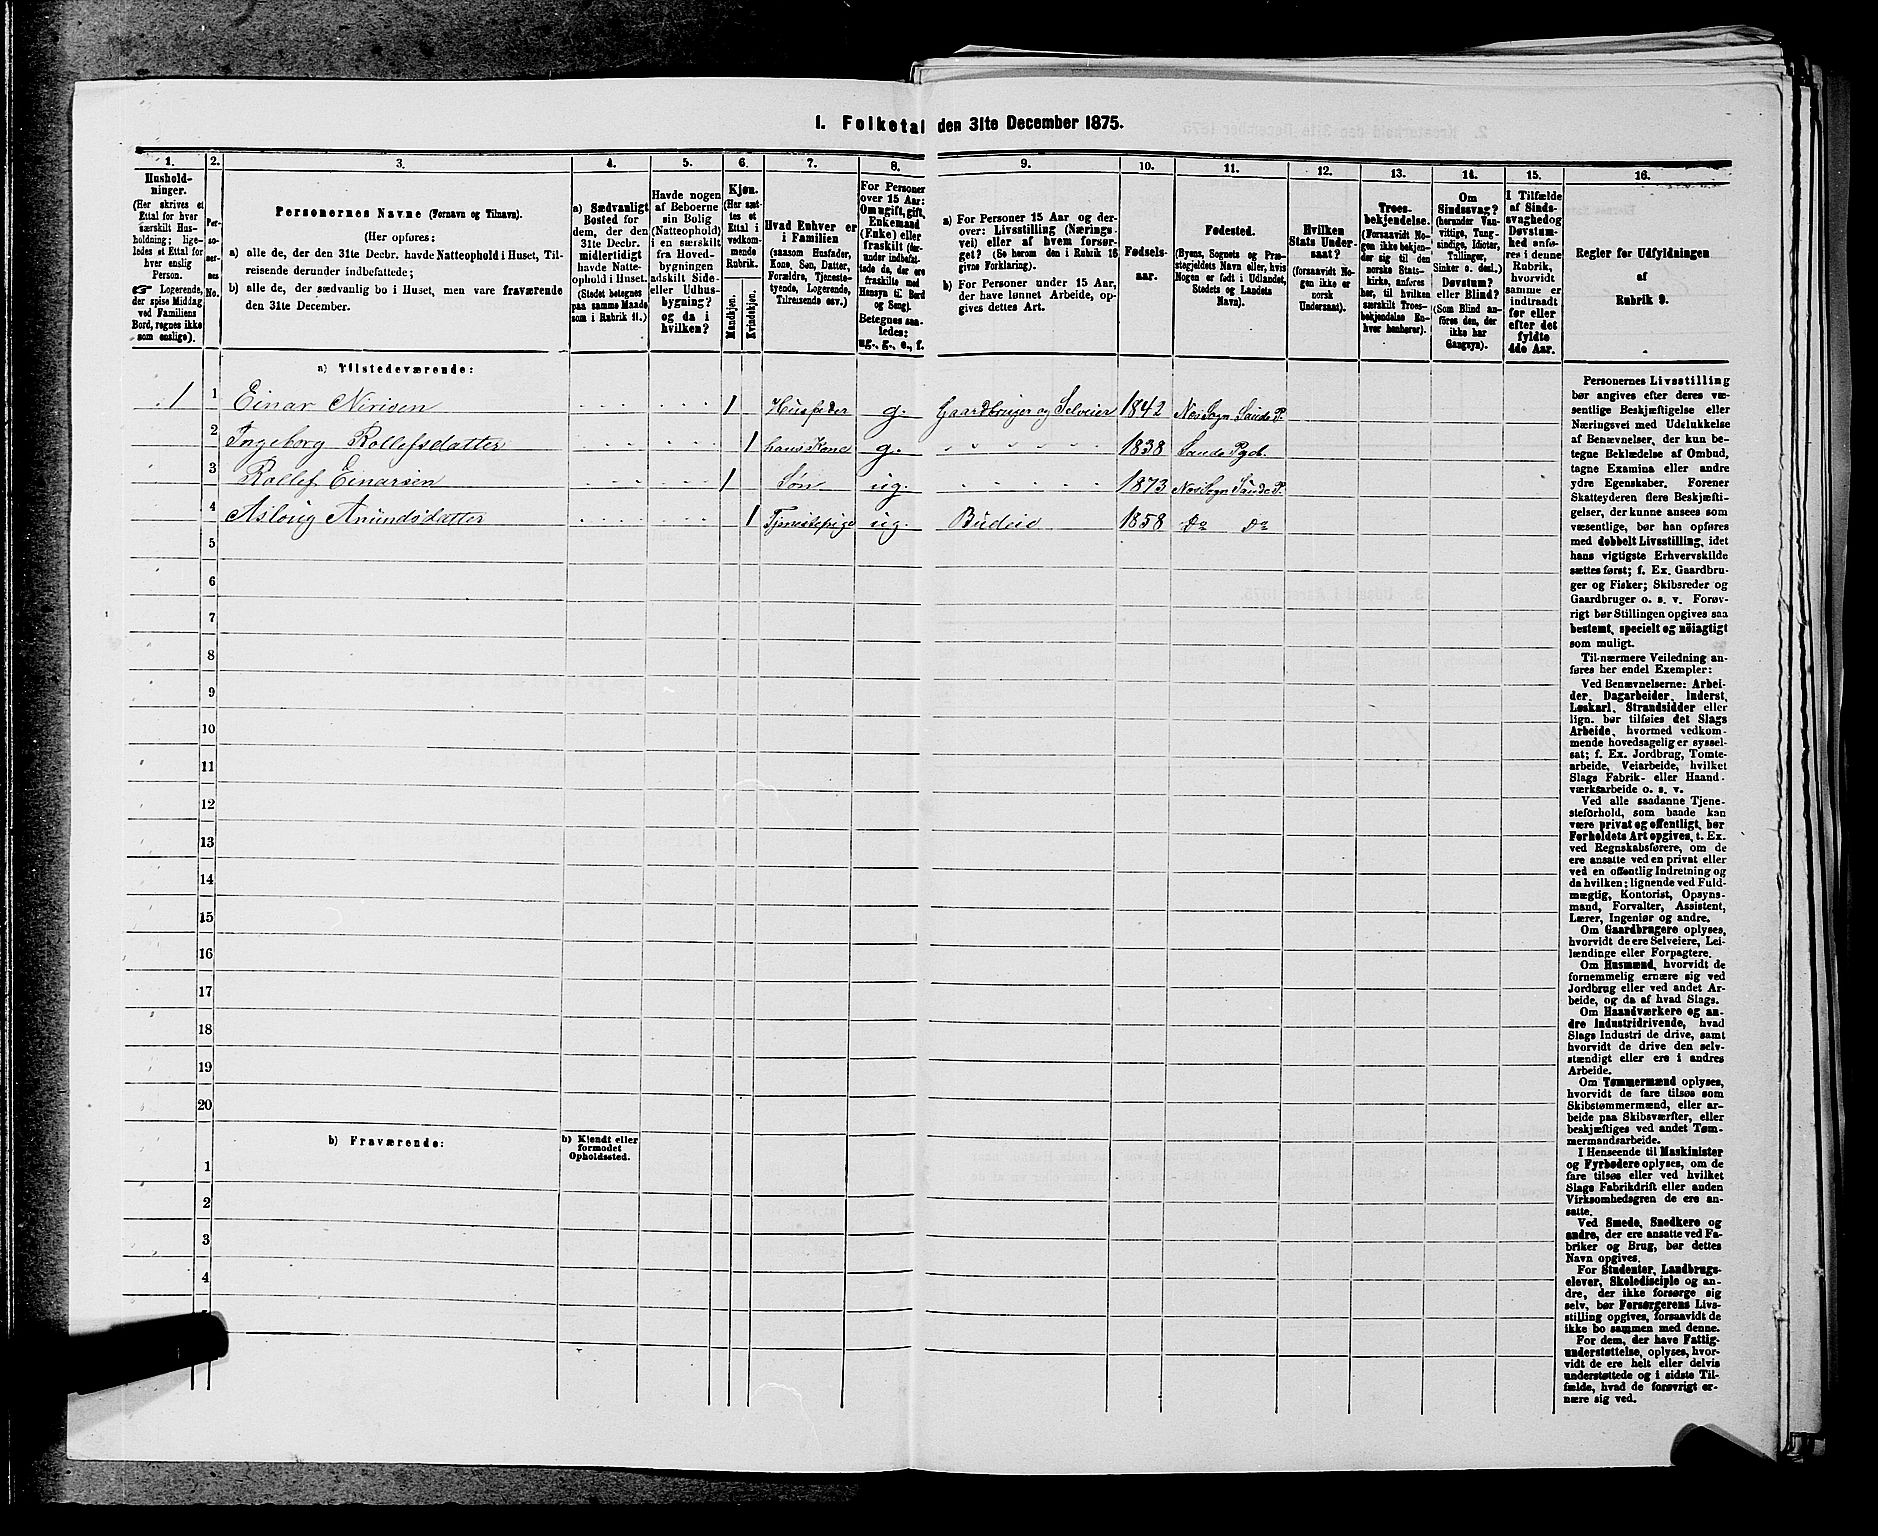 I. Folketal den 31te December 1875.
1. 2. 3. 4. 5. 6. 7. 8. 9. 10. 11. 12. 13. 14. 15. 16.
Hushold-
ninger.
(Her skrives et
Ettal for hver
særskilt Hus-
holdning; lige-
ledes et Ettal for
hver enslig
Person.
☞ Logerende,
der spise Middag
ved Familiens
Bord, regnes ikke
som enslige).
Per-
so-
ner-
nes
No.
Personernes Navne (Fornavn og Tilnavn).
(Her opføres:
a) alle de, der den 31te Decbr. havde Natteophold i Huset, Til-
reisende derunder indbefattede;
b) alle de, der sædvanlig bo i Huset, men vare fraværende
den 31te December.
a) Sædvanligt
Bosted for
dem, der den
31te Decbr.
midlertidigt
havde Natte-
ophold i Huset.
(Stedet betegnes
paa samme Maade
som i Rubrik 11.)
Havde nogen
af Beboerne
sin Bolig
(Natteophold)
i en særskilt
fra Hoved-
bygningen
adskilt Side-
eller Udhus-
bygning?
og da i
hvilken?
Kjøn.
(Her sæt-
tes et
Ettal i
vedkom-
mende
Rubrik.
Mandkjøn.
Kvindekjøn.
Hvad Enhver er
i Familien
(saasom Husfader,
Kone, Søn, Datter,
Forældre, Tjeneste-
tyende, Logerende,
Tilreisende osv.)
For Personer
over 15 Aar:
Om ugift, gift,
Enkemand
(Enke) eller
fraskilt (der-
under indbefat-
tede de, der ere
fraskilte med
Hensyn til Bord
og Seng).
Betegnes saa-
ledes:
ug., g., e., f.
a) For Personer 15 Aar og der-
over: Livsstilling (Nærings-
vei) eller af hvem forsør-
get? (Se herom den i Rubrik 16
givne Forklaring).
b) For Personer under 15 Aar,
der have lønnet Arbeide, op-
gives dettes Art.
Fødsels-
aar.
Fødested.
(Byens, Sognets og Præ-
stegjeldets Navn eller, hvis
Nogen er født i Udlandet,
Stedets og Landets
Navn).
Hvilken
Stats Under-
saat?
(forsaavidt No-
gen ikke er
norsk
Undersaat).
Troes-
bekjendelse.
(Forsaavidt No-
gen ikke bekjen-
der sig til den
norske Stats-
kirke, anføres
her, til hvilken
særskilt Troes-
bekjendelse En-
hver henhører).
Om
Sindssvag?
(herunder Van-
vittige, Tung-
sindige, Idioter,
Tullinger,
Sinker o. desl.)
Døvstum?
eller Blind?
(Som Blind an-
føres den, der
ikke har
Gangsyn).
I Tilfælde
af Sinds-
svaghed og
Døvstum-
hed anfø-
res i denne
Rubrik,
hvorvidt
samme er
indtraadt
før eller
efter det
fyldte
4de Aar.
Regler for Udfyldningen
af
Rubrik 9.
a) Tilstedeværende:
1 1 Einar 1 Husfader g. Gaardbruger og Selveier 1842 Nes Sogn Saude P.
2 Ingeborg Rollefsdatter 1 hans Kone g. " " " " " 1838 Saude Pgd.
3 Rollef Einarsen 1 Søn ug. 1873 Nes Sogn Saude P.
4 Asloug Amundsdatter 1 Tjenestepige ug. Budeie 1858 Do Do
5
6
7
8
9
10
11
12
13
14
15
16
17
18
19
20
b) Fraværende:
b) Kjendt eller
formodet
Opholdssted.
1
2
3
4
Personernes Livsstilling
bør angives efter deres væ-
sentlige Beskjæftigelse eller
Næringsvei med Udelukkelse
af Benævnelser, der kun be-
tegne Beklædelse af Ombud,
tagne Examina eller andre
ydre Egenskaber. Forener
Skatteyderen flere Beskjæfti-
gelser, der kunne ansees som
væsentlige, bør han opføres
med dobbelt Livsstilling, idet
hans vigtigste Erhvervskilde
sættes først; f. Ex. Gaardbru-
ger og Fisker; Skibsreder og
Gaardbruger o. s. v. Forøv-
rigt bør Stillingen opgives saa
bestemt, specielt og nøiagtigt
som muligt.
Til nærmere Veiledning an-
føres her endel Exempler:
Ved Benævnelserne: Arbei-
der, Dagarbeider, Inderst,
Løskarl, Strandsidder eller
lign. bør tilføies det Slags
Arbeide, hvormed vedkom-
mende hovedsagelig er syssel-
sat; f. Ex. Jordbrug, Tomte-
arbeide, Veiarbeide, hvilket
Slags Fabrik- eller Haand-
værksarbeide o. s. v.
Ved alle saadanne Tjene-
steforhold, som baade kan
være privat og offentligt, bør
Forholdets Art opgives, t. Ex.
ved Regnskabsførere, om de
ere ansatte ved en privat eller
ved en offentlig Indretning og
da hvilken; lignende ved Fuld-
mægtig, Kontorist, Opsyns-
mand, Forvalter, Assistent,
Lærer, Ingeniør og andre.
Om Gaardbrugere oplyses,
hvorvidt de ere Selveiere, Lei-
lændinge eller Forpagtere.
Om Husmænd, hvorvidt de
fornemmelig ernære sig ved
Jordbrug eller ved andet Ar-
beide, og da af hvad Slags.
Om Haandværkere og an-
dre Industridrivende, hvad
Slags Industri de drive, samt
hvorvidt de drive den selv-
stændigt eller ere i andres
Arbeide.
Om Tømmermænd oplyses,
hvorvidt de fare tilsøs som
Skibstømmermænd, eller ar-
beide paa Skibsværfter, eller
beskjæftiges ved andet Tøm-
mermandsarbeide.
I Henseende til Maskinister
og Fyrbødere oplyses, om de
fare tilsøs eller ved hvilket
Slags Fabrikdrift eller anden
Virksomhedsgren de ere an-
satte.
Ved Smede, Snedkere og
andre, der ere ansatte ved Fa-
briker og Brug, bør dettes
Navn opgives.
For Studenter, Landbrugs-
elever, Skoledisciple og an-
dre, der ikke forsørge sig
selv, bør Forsørgerens Livs-
stilling opgives, forsaavidt de
ikke bo sammen med denne.
For dem, der have Fattig-
understøttelse, oplyses, hvor-
vidt de ere helt eller delvis
understøttede og i sidste Til-
fælde, hvad de forøvrigt er-
nære sig ved.